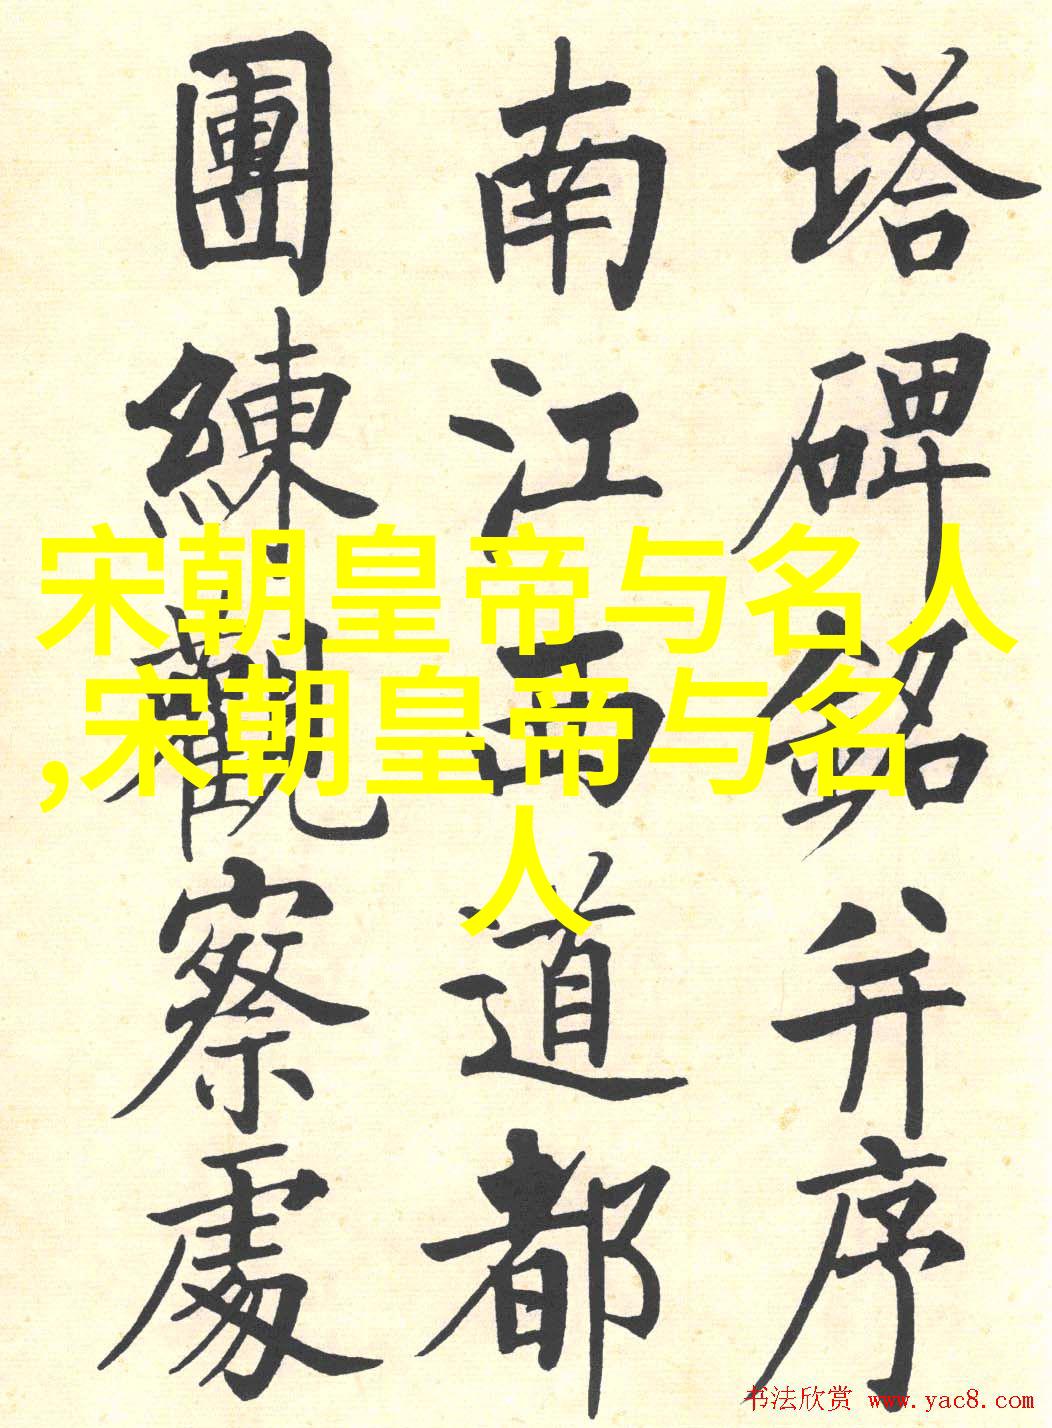 塔碑銘并序
南江西道都
團練觀察處
宋朝皇帝与名人
,宋朝皇帝与名
人
书法欣赏 www.yac8.com